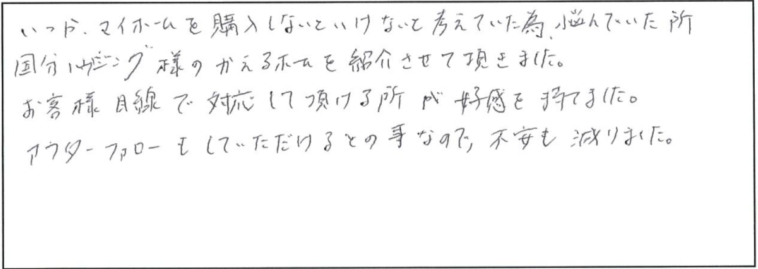 いつか、マイホームを購入しないといけないと考えていた為、悩んでいた所
国分ハウジング様のかえるホームを紹介させて頂きました。
お客様目線で対応して頂ける所が好感を持てました。
アフターフォローもしていただけるとの事なので、不安も減りました。